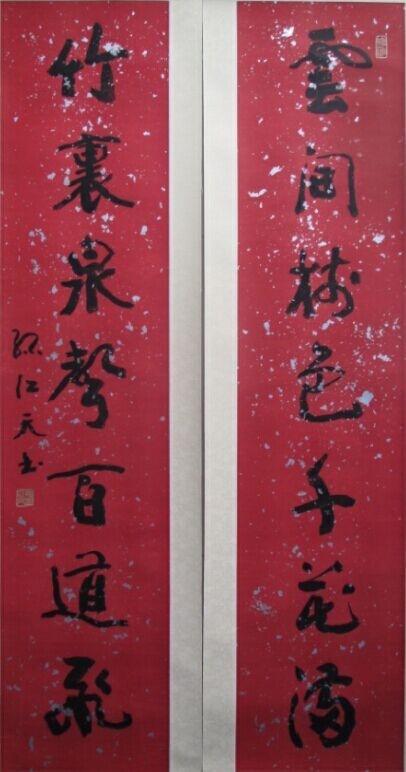 雲間樹色千花滿
竹裏泉聲百道飛
孫江天書